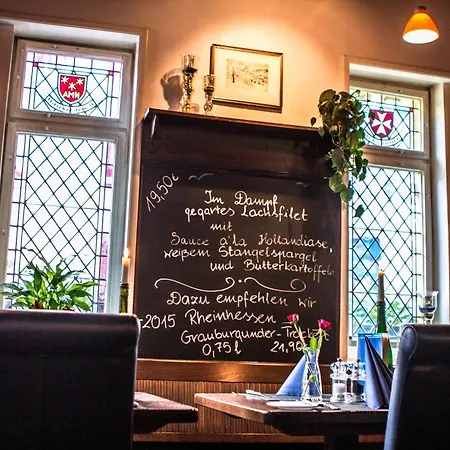 AMH
19,50€
Im Dampf
gegartes Lachsfilet
mit
Sauce a'la Hollandiase,
weißem Stangelspargel
und Butterkartoffeln
Dazu empfehlen wir
2015 Rheinhessen
Grauburgunder-Trocken
0,75l 21,90€